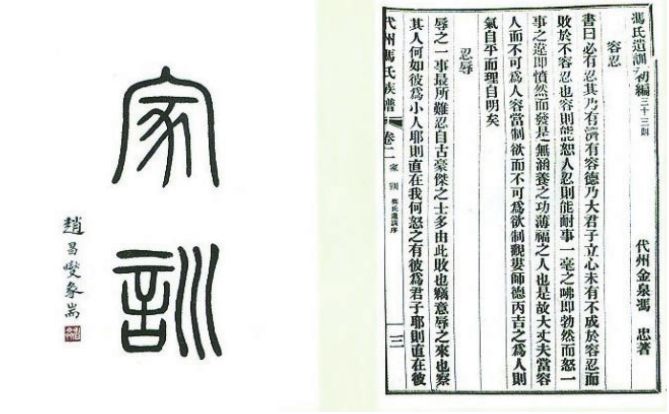 家訓
趙昌燮篆耑
馮氏遺訓初編三十三則
容忍
代州金泉馮 忠著
書曰必有忍其乃有濟有容德乃大君子立心未有不成於容忍而
敗於不容忍也容則能恕人忍則能耐事一毫之咈即勃然而怒一
事之違即憤然而發是無涵養之功薄福之人也是故大丈夫當容
人而不可爲人容當制欲而不可爲欲制觀婁師德丙吉之爲人則
氣自平而理自明矣
忍辱
辱之一事最所難忍自古豪傑之士多由此敗也竊意辱之來也察
其人何如彼爲小人耶則直在我何怒之有彼爲君子耶則直在彼
代州馮氏族譜 卷二 家訓 馮氏遺訓序 三